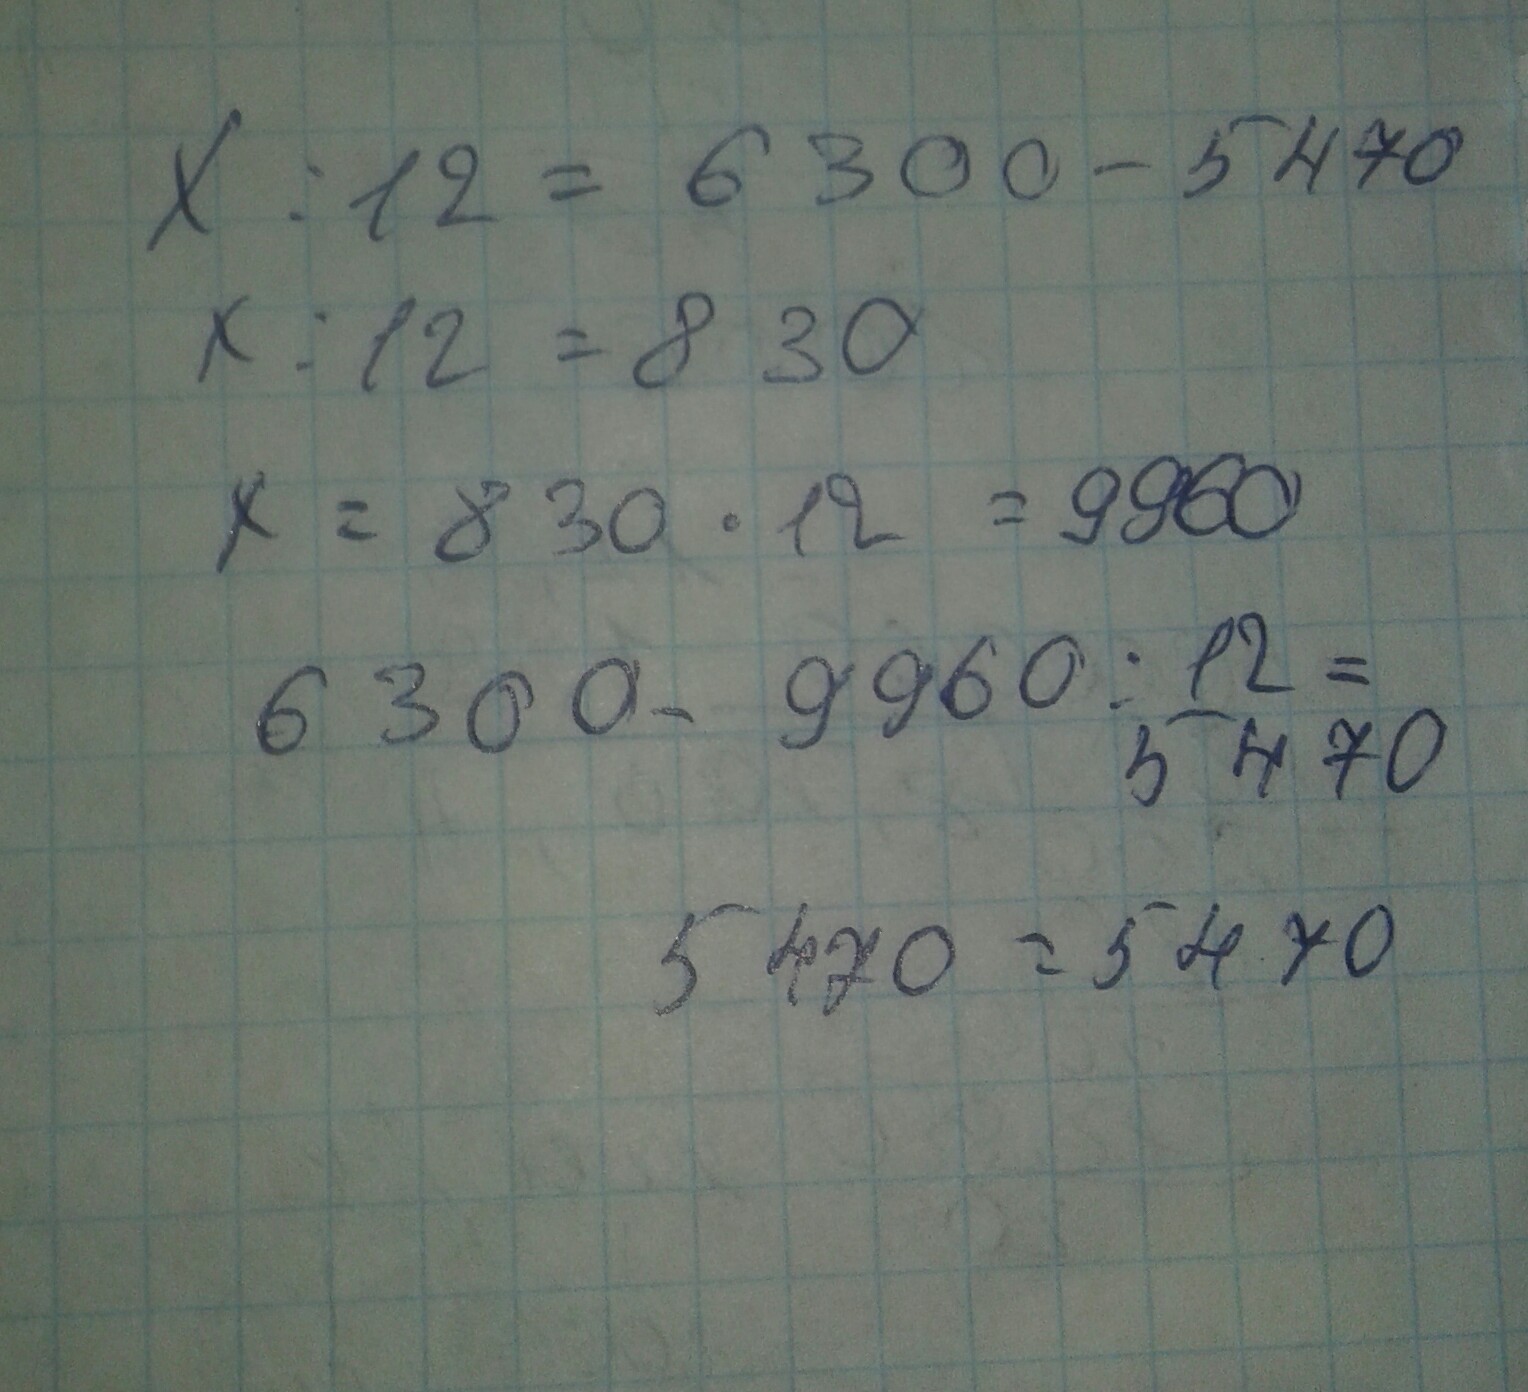 x : 12 = 6300 - 5470
x : 12 = 830
x = 830 · 12 = 9960
6300 - 9960 : 12 =
5470
5470 = 5470